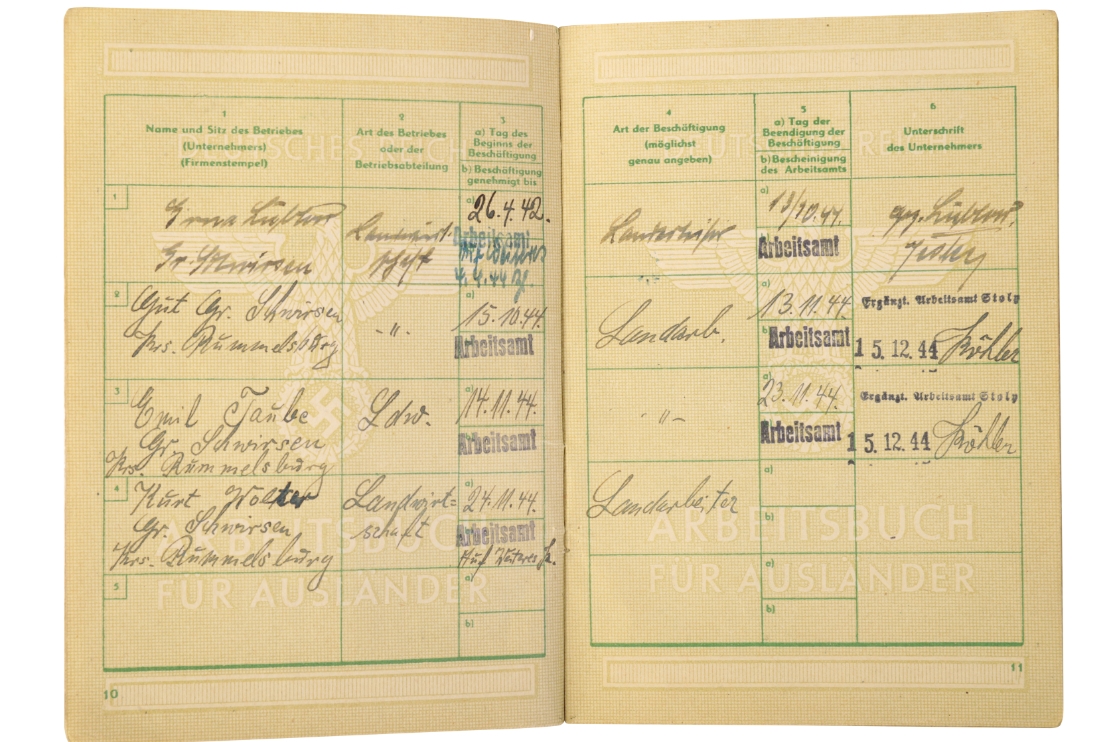 1
Name und Sitz des Betriebes
(Unternehmers)
(Firmenstempel)
2
Art des Betriebes
oder der
Betriebsabteilung
3
a) Tag des
Beginns der
Beschäftigung
b) Beschäftigung
genehmigt bis
1
Gr. Schwirsen
Landwirt-
schaft
a)
26.4.42.
Arbeitsamt
4.4.44
2
Gut Gr. Schwirsen
Krs. Rummelsburg
-"-
a)
15.10.44.
Arbeitsamt
3
Emil Taube
Gr. Schwirsen
Krs. Rummelsburg
Ldw.
a)
14.11.44.
Arbeitsamt
4
Kurt Wolter
Gr. Schwirsen
Krs. Rummelsburg
Landwirt=
schaft
a)
24.11.44.
Arbeitsamt
Auf Weiteres
5
a)
b)
DEUTSCHES REICH
ARBEITSBUCH
FÜR AUSLÄNDER
10
4
Art der Beschäftigung
(möglichst
genau angeben)
5
a) Tag der
Beendigung der
Beschäftigung
b) Bescheinigung
des Arbeitsamts
6
Unterschrift
des Unternehmers
a)
13/10.44.
Arbeitsamt
Landarb.
a)
13.11.44.
b)
Arbeitsamt
Ergänzt. Arbeitsamt Stolp
1 5. 12. 44 Köhler
-"-
a)
23.11.44.
Arbeitsamt
Ergänzt. Arbeitsamt Stolp
1 5. 12. 44 Köhler
Landarbeiter
a)
b)
a)
b)
DEUTSCHES REICH
ARBEITSBUCH
FÜR AUSLÄNDER
11